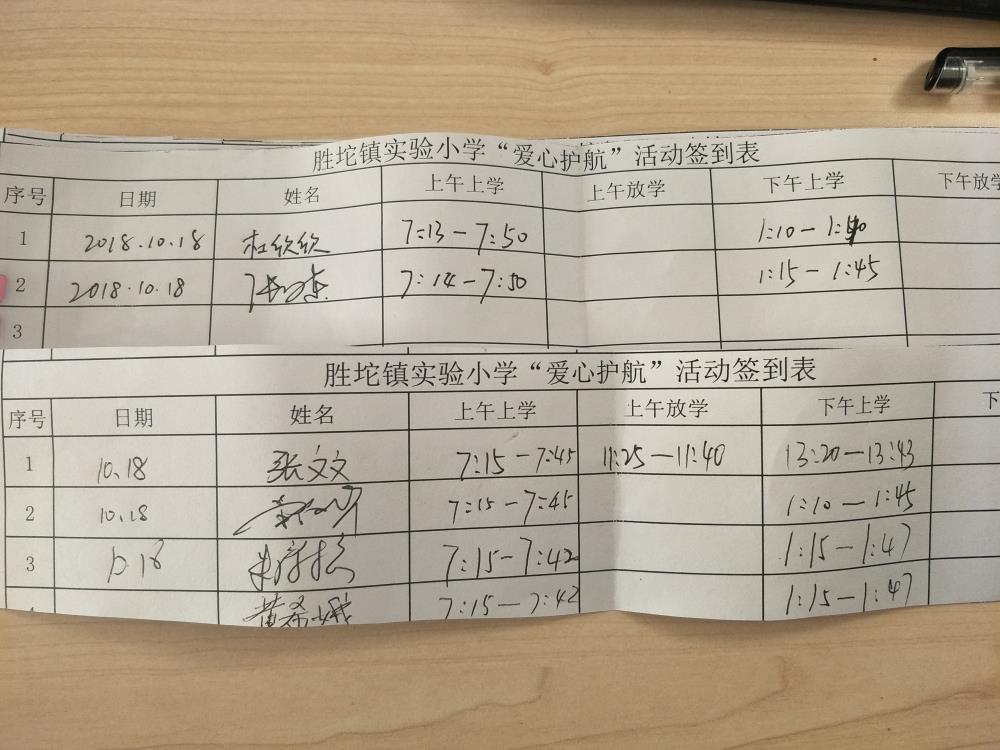 胜坨镇实验小学“爱心护航”活动签到表
序号 日期 姓名 上午上学 上午放学 下午上学 下午放学
1 2018.10.18 杜欣欣 7:13-7:50 1:10-
2 2018.10.18 7:14-7:50 1:15-1:45
3
胜坨镇实验小学“爱心护航”活动签到表
序号 日期 姓名 上午上学 上午放学 下午上学 下
1 10.18 张文文 7:15-7:45 11:25-11:40 13:20-13:43
2 10.18 7:15-7:45 1:10-1:45
3 10.18 7:15-7:42 1:15-1:47
7:15-7:42 1:15-1:47